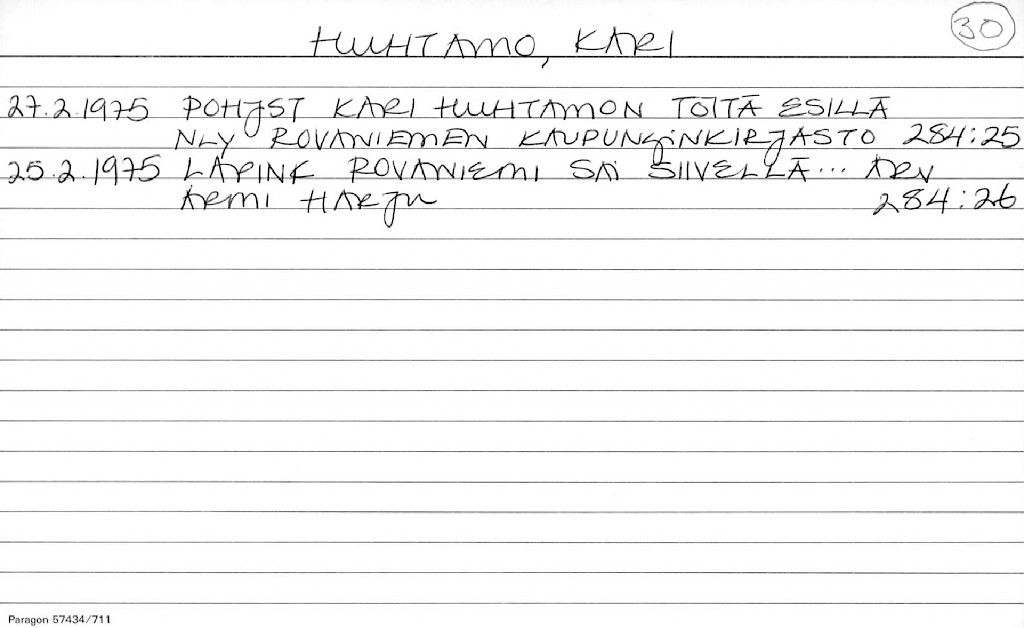 30
HUUHTAMO, KARI
27.2.1975 POHJST KARI HUUHTAMON TÖITÄ ESILLÄ
NLY ROVANIEMEN KAUPUNGINKIRJASTO 284:25
25.2.1975 LAPINK ROVANIEMI SAI SIIVELLÄ... ARV
ARMI HARJU 284:26
Paragon 57434/711